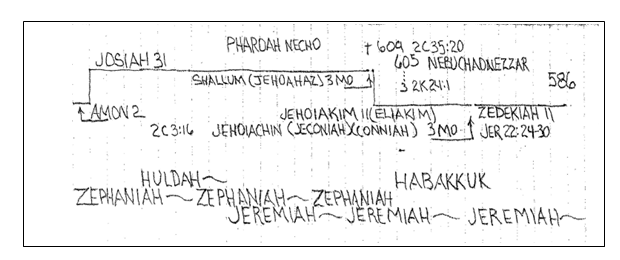 PHARDAH NECHO † 609 2C35:20
JOSIAH 31 605 NEBUCHADNEZZAR
SHALLUM (JEHOAHAZ) 3 MO 3 2K24:1 586
AMON 2 JEHOIAKIM 11 (ELIAKIM) ZEDEKIAH 11
2C3:16 JEHOIACHIN (JECONIAH)(CONNIAH) 3MO JER 22:24-30
HULDAH~ HABAKKUK
ZEPHANIAH~ ZEPHANIAH~ ZEPHANIAH
JEREMIAH~ JEREMIAH~ JEREMIAH~